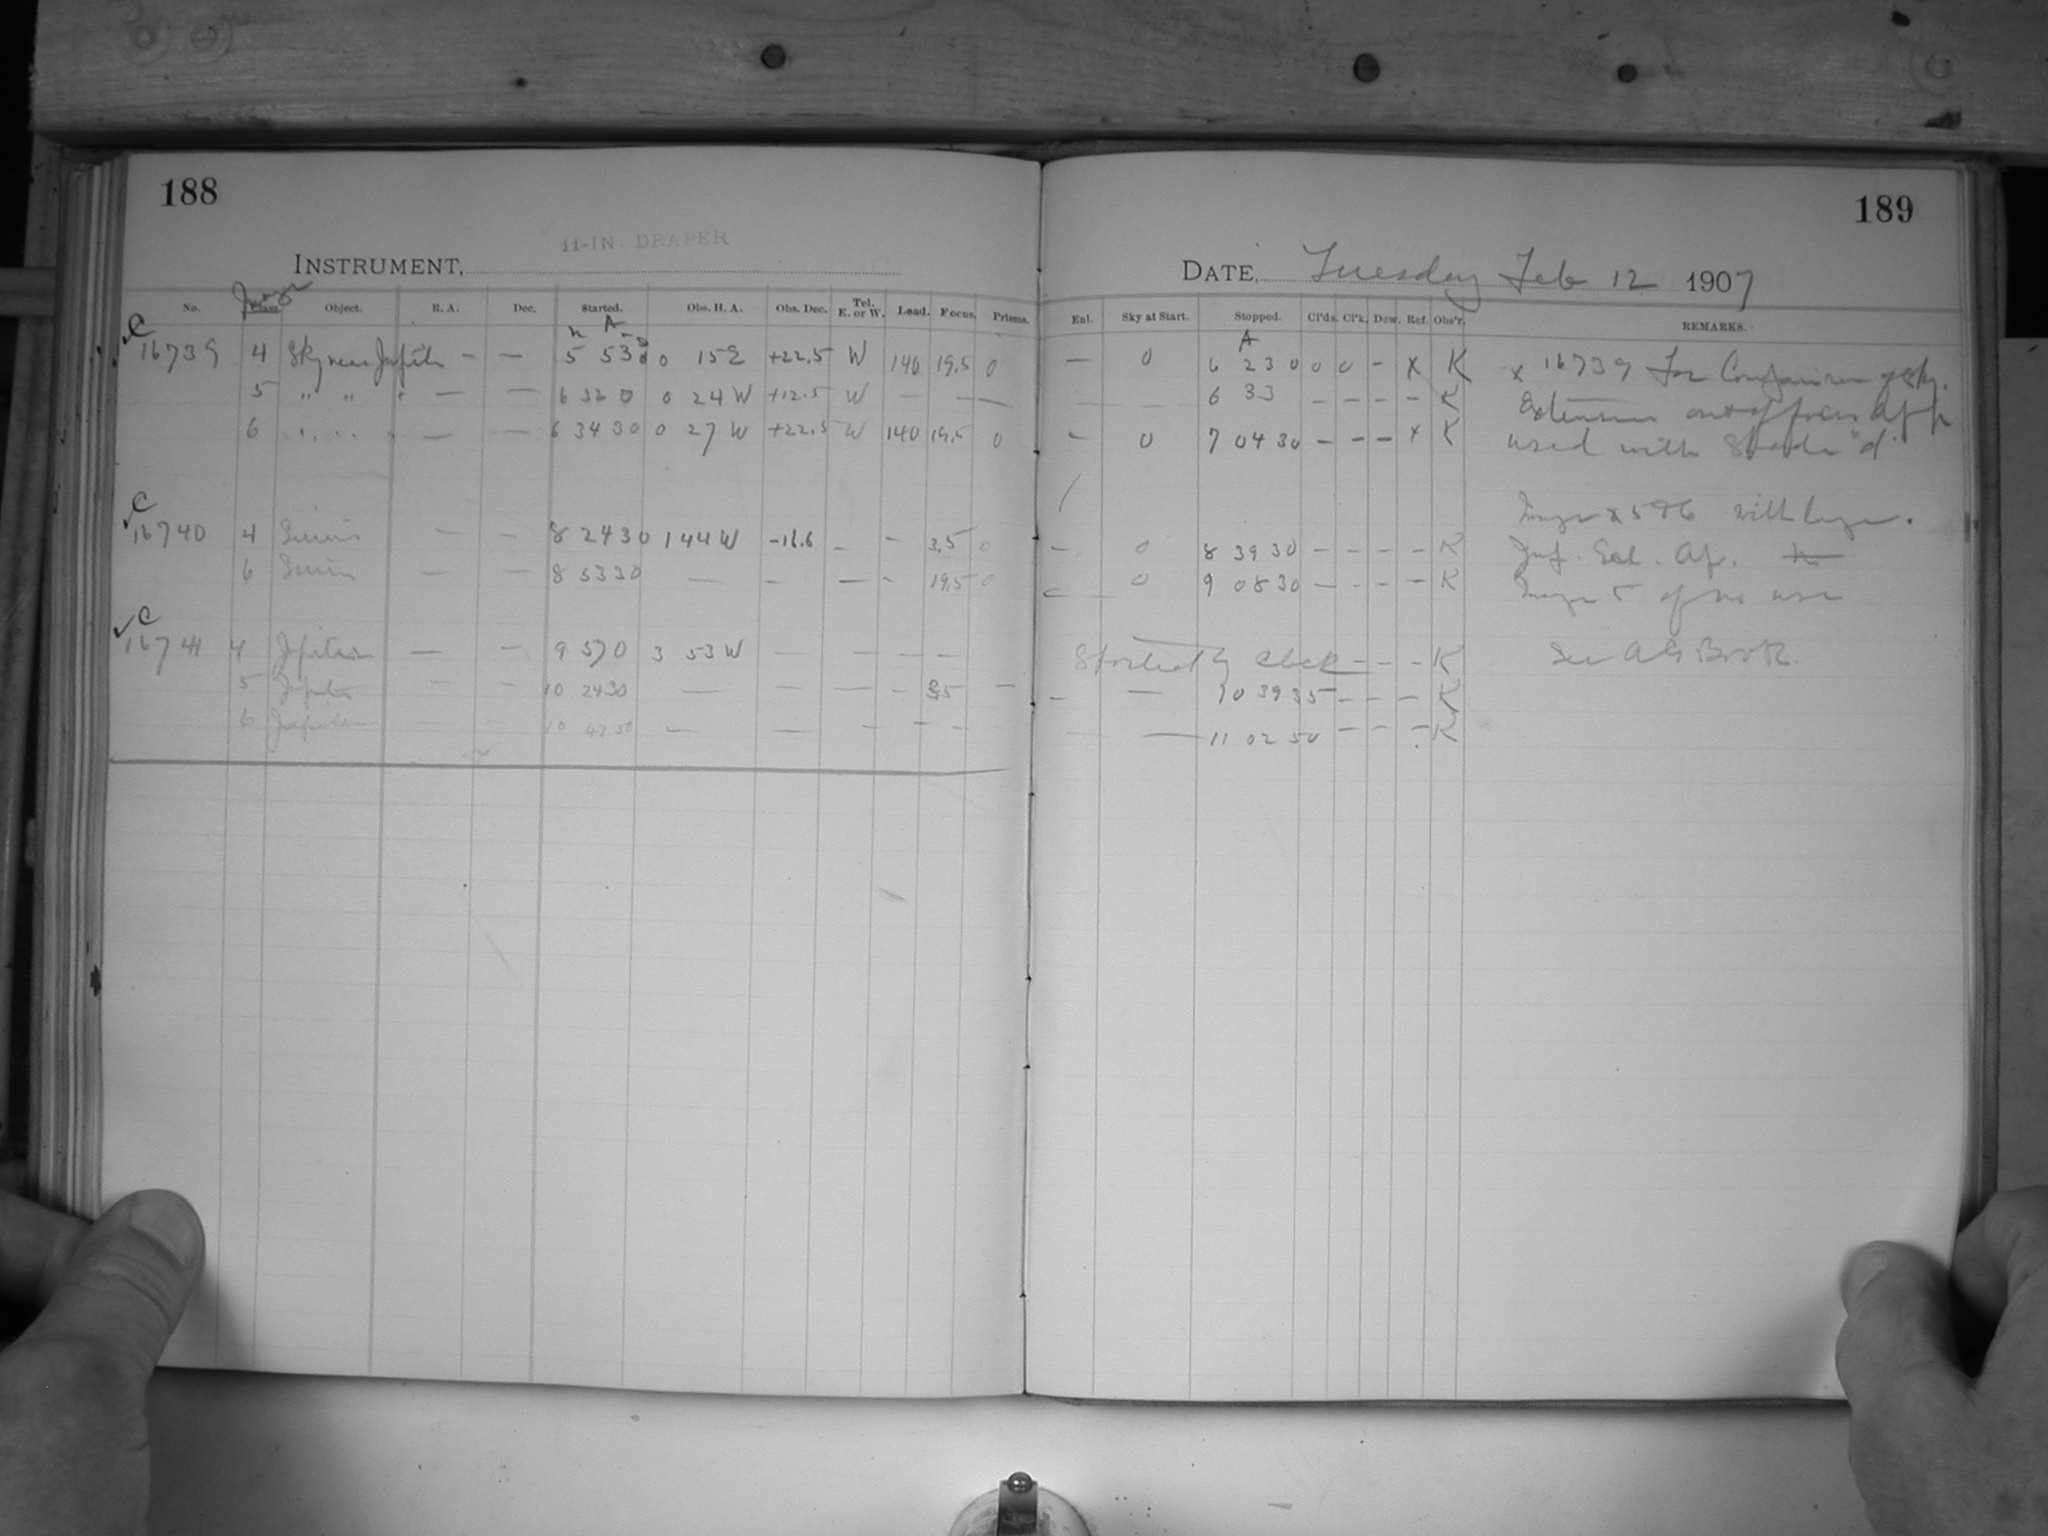 188
11-IN. DRAPER
INSTRUMENT,
No. Image Class. Object. R. A. Dec. Started. Obs. H. A. Obs. Dec. Tel. E. or W. Load. Focus. Prisms.
h A
C
16739 4 Sky near Jupiter - — 5 53 0 0 15 E +22.5 W 140 19.5 0
5 " " " — — 6 32 0 0 24 W +12.5 W — — —
6 " " " — — 6 34 30 0 27 W +22.5 W 140 19.5 0
C
16740 4 Sirius — — 8 24 30 1 44 W -16.6 — - 3.5 0
6 Sirius — — 8 53 30 — — — - 19.5 0
C
16741 4 Jupiter — — 9 57 0 3 53 W — — — —
5 Jupiter — — 10 24 30 — — — - —
6 Jupiter — — 10 47 50 — — — — —
189
DATE, Tuesday Feb 12 1907
Enl. Sky at Start. Stopped. Cl'ds. Cl'k. Dew. Ref. Obs'r. REMARKS.
A
— 0 6 23 0 0 0 - x K x 16739 For Comparison of Sky.
— — 6 33 - - - - K Extension out of focus
- 0 7 04 30 - - - x K used with Shade "d"
Image with large.
- 0 8 39 30 - - - - K
0 9 08 30 - - - - K Image 5 of no use
Started by Clock - - - K See A G Book.
- — 10 39 35 - - - K
— — 11 02 50 - - - K